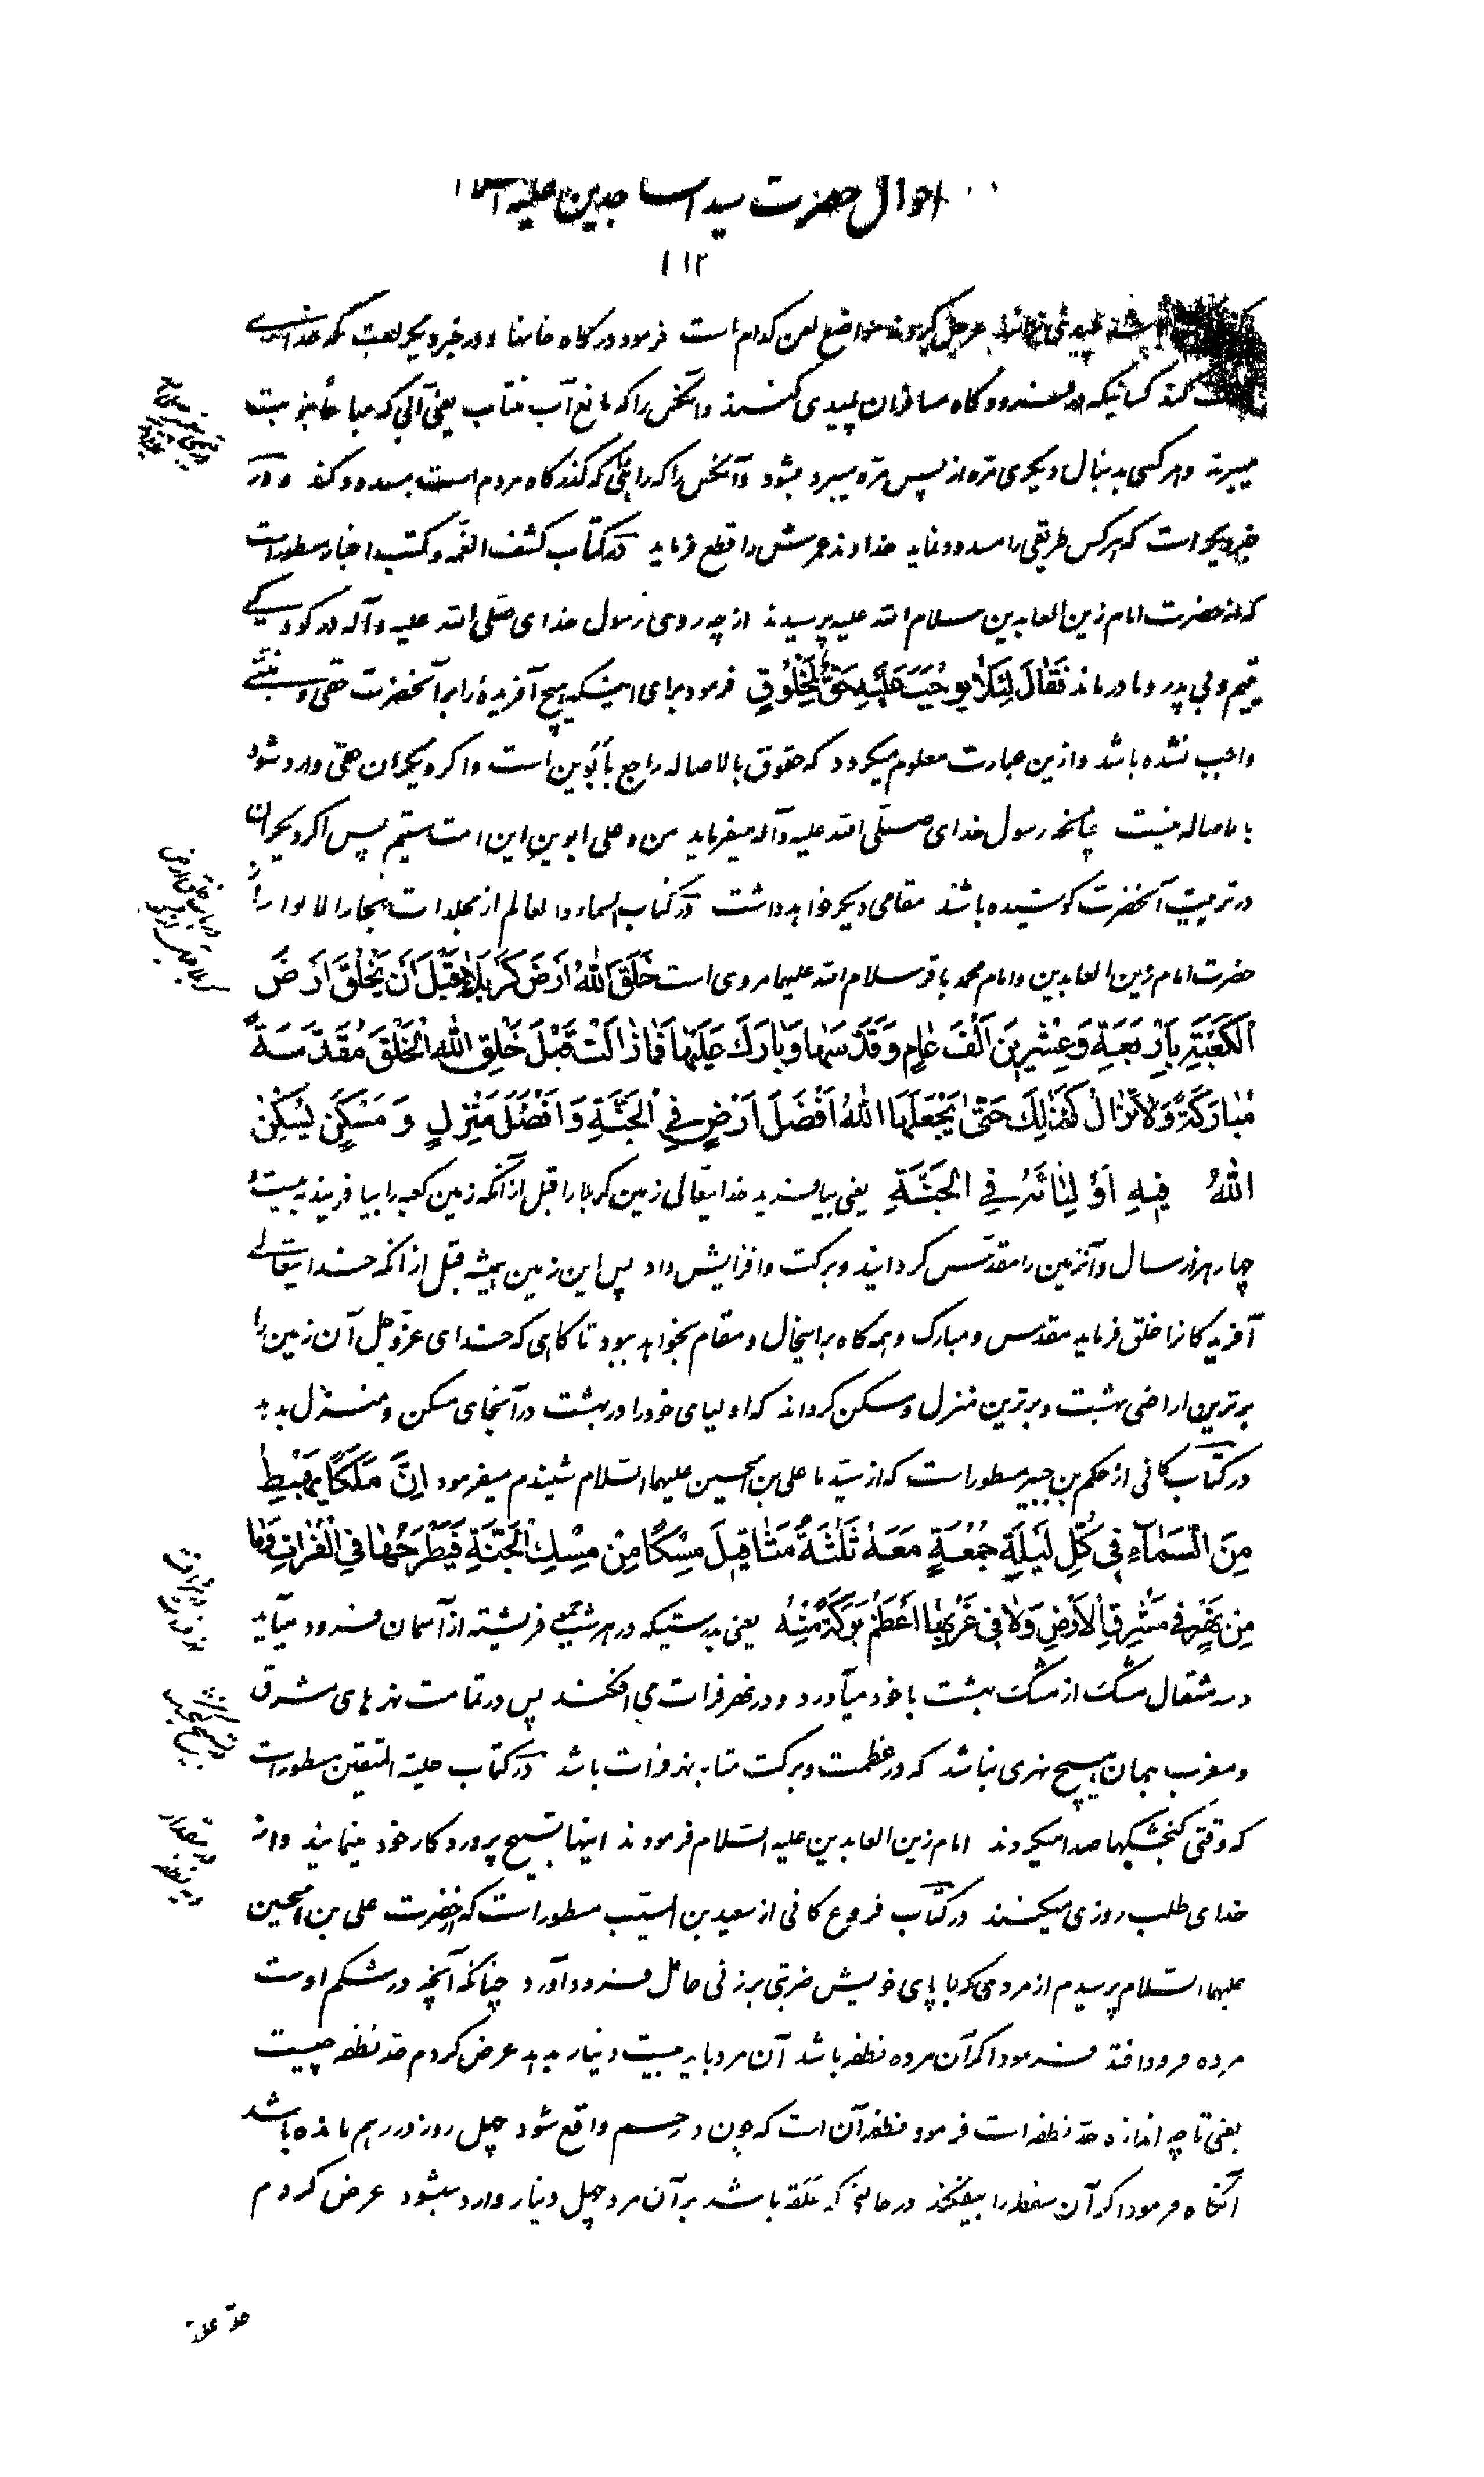 احوال حضرت سید الساجدین علیه السلام
۱۱۲
مواضع لعن کدام است فرمود درگاه خانها و در خبر دیگر لعنت
کند کسانیکه در فرودگاه مسافران پلیدی کنند و آنکس را که مانع آب منتاب یعنی آبی که مباح نبوبت
میبرند و هر کسی بدنبال دیگری مره از پس مره میبرد بشود و آنکس را که راهی که گذرگاه مردم است مسدود کند و در
خبر دیگر است که هر کس طریقی را مسدود نماید خداوند عمرش را قطع فرماید در کتاب کشف الغمه و کتب اخبار مسطور است
که از حضرت امام زین العابدین سلام الله علیه پرسیدند از چه روی رسول خدای صلی الله علیه و آله در کودکی
یتیم و بی پدر و مادر ماند فَقٰالَ لِئَلّا یُوجَبَ عَلَیْهِ حَقٌّ لِمَخْلُوقٍ فرمود برای اینکه هیچ آفریده را بر آنحضرت حقی و منتی
واجب نشده باشد و از این عبارت معلوم میگردد که حقوق بالاصاله راجع بأبوین است و اگر دیگران حقی وارد شود
باصاله نیست چنانکه رسول خدای صلی الله علیه و آله میفرماید من و علی ابوین این امت هستیم پس اگر دیگران
در تربیت آنحضرت کوشیده باشند مقامی دیگر خواهد داشت در کتاب السماء و العالم از مجلدات بحار الانوار از
حضرت امام زین العابدین و امام محمد باقر سلام الله علیهما مروی است خَلَقَ اللهُ اَرْضَ کَرْبَلاءَ قَبْلَ اَنْ یَخْلُقَ اَرْضَ
الْکَعْبَةِ بِاَرْبَعَةٍ وَعِشْرینَ اَلْفَ عٰامٍ وَقَدَّسَهٰا وَبٰارَكَ عَلَیْهٰا فَمٰازٰالَتْ قَبْلَ خَلْقِ اللهِ الْخَلْقَ مُقَدَّسَةً
مُبٰارَکَةً وَلاٰتَزٰالُ کَذٰلِكَ حَتّٰی یَجْعَلَهَا اللهُ اَفْضَلَ اَرْضٍ فِی الْجَنَّةِ وَاَفْضَلَ مَنْزِلٍ وَ مَسْکَنٍ یُسْکِنُ
اللهُ فِیهِ اَوْلِیٰائَهُ فِی الْجَنَّةِ یعنی بیافرید خدایتعالی زمین کربلا را قبل از آنکه زمین کعبه را بیافریند به بیست و
چهار هزار سال و آنزمین را مقدس گردانید و برکت و افزایش داد پس این زمین همیشه قبل از آنکه خدایتعالی
آفریدگانرا خلق فرماید مقدس و مبارک و همه گاه بر اینحال و مقام بخواهد بود تا گاهی که خدای عز و جل آن زمین را
برترین اراضی بهشت و برترین منزل و مسکن گرداند که اولیای خود را در بهشت در آنجای مسکن و منزل بدهد
در کتاب کافی از حکم بن جبیر مسطور است که از سید ما علی بن الحسین علیهما السلام شنیدم میفرمود اِنَّ مَلَکًا یَهْبِطُ
مِنَ السَّمٰآءِ فی کُلِّ لَیْلَةِ جُمُعَةٍ مَعَهُ ثَلٰثَةُ مَثٰاقِیلَ مِسْکًا مِنْ مِسْكِ الْجَنَّةِ فَیَطْرَحُهٰا فِی الْفُرٰاتِ وَمٰا
مِنْ نَهْرٍ فی مَشْرِقِ الْاَرْضِ وَلاٰ فی غَرْبِهٰا اَعْظَمُ بَرَکَةً مِنْهُ یعنی بدرستیکه در هر شب جمعه فرشته از آسمان فرود میآید
و سه مثقال مشک از مشک بهشت با خود میآورد و در نهر فرات می افکند پس در تمامت نهرهای مشرق
و مغرب جهان هیچ نهری نباشد که در عظمت و برکت مشابه نهر فرات باشد در کتاب حلیة المتقین مسطور است
که وقتی گنجشگها صدا میکردند امام زین العابدین علیه السلام فرمودند اینها تسبیح پروردگار خود مینمایند و از
خدای طلب روزی میکنند در کتاب فروع کافی از سعید بن المسیب مسطور است که از حضرت علی بن الحسین
علیهما السلام پرسیدم از مردی که با پای خویش ضربتی بر زنی حامل فرود آورد چنانکه آنچه در شکم اوست
مرده فرود افتد فرمود اگر آن مرده نطفه باشد آن مرد باید بیست دینار بدهد عرض کردم حد نطفه چیست
یعنی تا چه اندازه حد نطفه است فرمود نطفه آن است که چون در رحم واقع شود چهل روز در رحم مانده باشد
آنگاه فرمود اگر آن سقط را بیفکند در حالتی که علقه باشد بر آن مرد چهل دینار وارد میشود عرض کردم